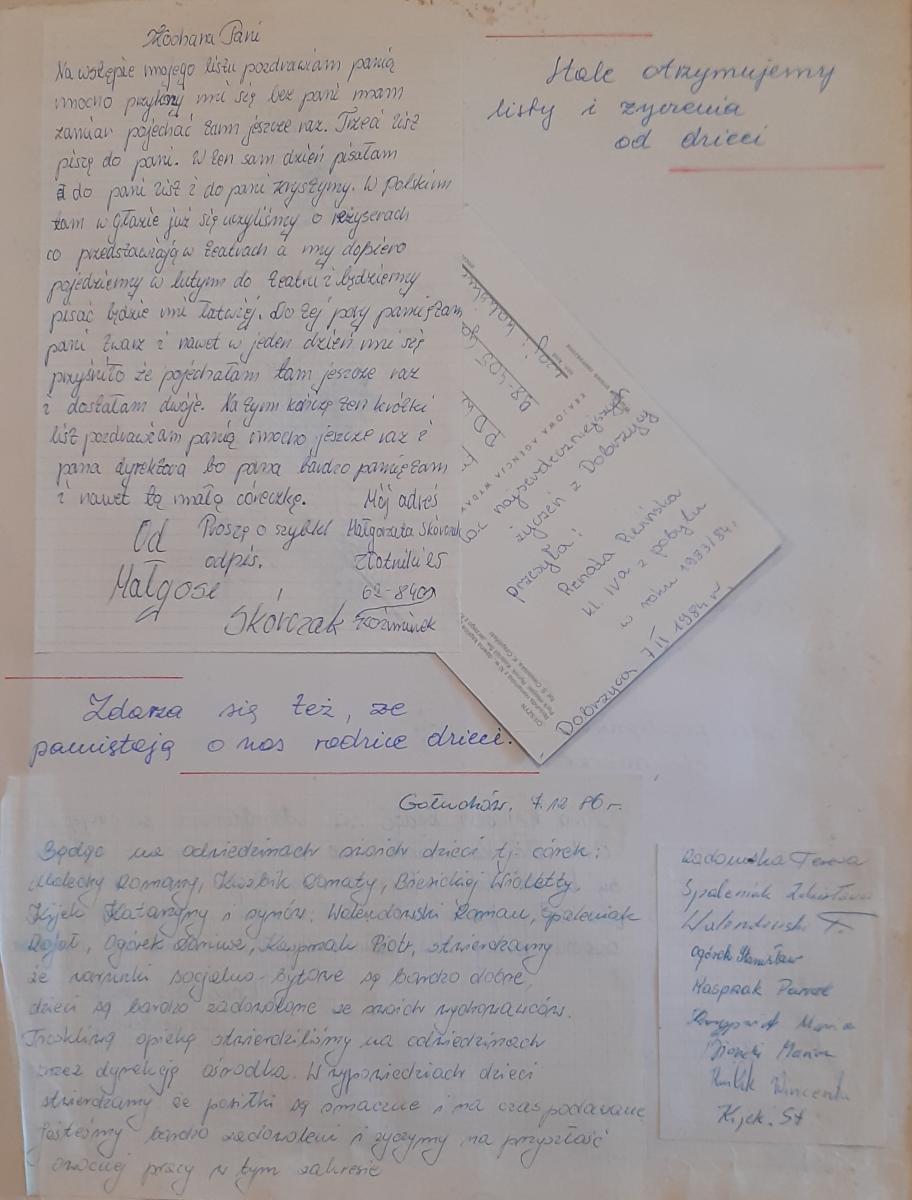 Kochana Pani
Na wstępie mojego listu pozdrawiam panią
mocno przykrzy mi się bez pani mam
zamiar pojechać tam jeszcze raz. Trzeci list
piszę do pani. W ten sam dzień pisałam
do pani list i do pani krystyny. W Polskim
tam w głazie już się uczyliśmy o reżyserach
co przedstawiają w teatrach a my dopiero
pojedziemy w lutym do teatru i będziemy
pisać będzie mi łatwiej. Do tej pory pamiętam
pani twarz i nawet w jeden dzień mi się
przyśniło że pojechałam tam jeszcze raz
i dostałam dwóje. Na tym kończę ten krótki
list pozdrawiam panią mocno jeszcze raz i
pana dyrektora bo pana bardzo pamiętam
i nawet tą małą córeczkę.
Od
Małgosi
Skórczak
Proszę o szybki
odpis.
Mój adres
Małgorzata Skórczak
Złotniki 25
62-840
Koźminek
Stale otrzymujemy
listy i życzenia
od dzieci
98-405
KRAJOWA AGENCJA
najserdeczniejszych
życzeń z Dobrzycy
przesyła!
Renata
kl. IVa z pobytu
w roku 1983/84r.
Dobrzyca 7 II 1984 r.
OLSZTYN
Zdarza się też, że
pamiętają o nas rodzice dzieci.
Gołuchów, 7.12 86 r.
Będąc na odwiedzinach swoich dzieci tj. córek:
Małecky Romany, Renaty, Wioletty,
Kijek Katarzyny i synów: Walendowski Roman, Spaleniak
Rafał, Ogórek Dariusz, Kasprzak Piotr, stwierdzamy
że warunki socjalno-bytowe są bardzo dobre,
dzieci są bardzo zadowolone ze swoich wychowawców.
Troskliwą opiekę stwierdziliśmy na odwiedzinach
przez dyrekcję ośrodka. W wypowiedziach dzieci
stwierdzamy że posiłki są smaczne i na czas podawane
Jesteśmy bardzo zadowoleni i życzymy na przyszłość
owocnej pracy w tym zakresie
Radomska Teresa
Spaleniak
Walendowski F.
Ogórek Stanisław
Kasprzak Paweł
Maria
Maria
Wincenty
Kijek St